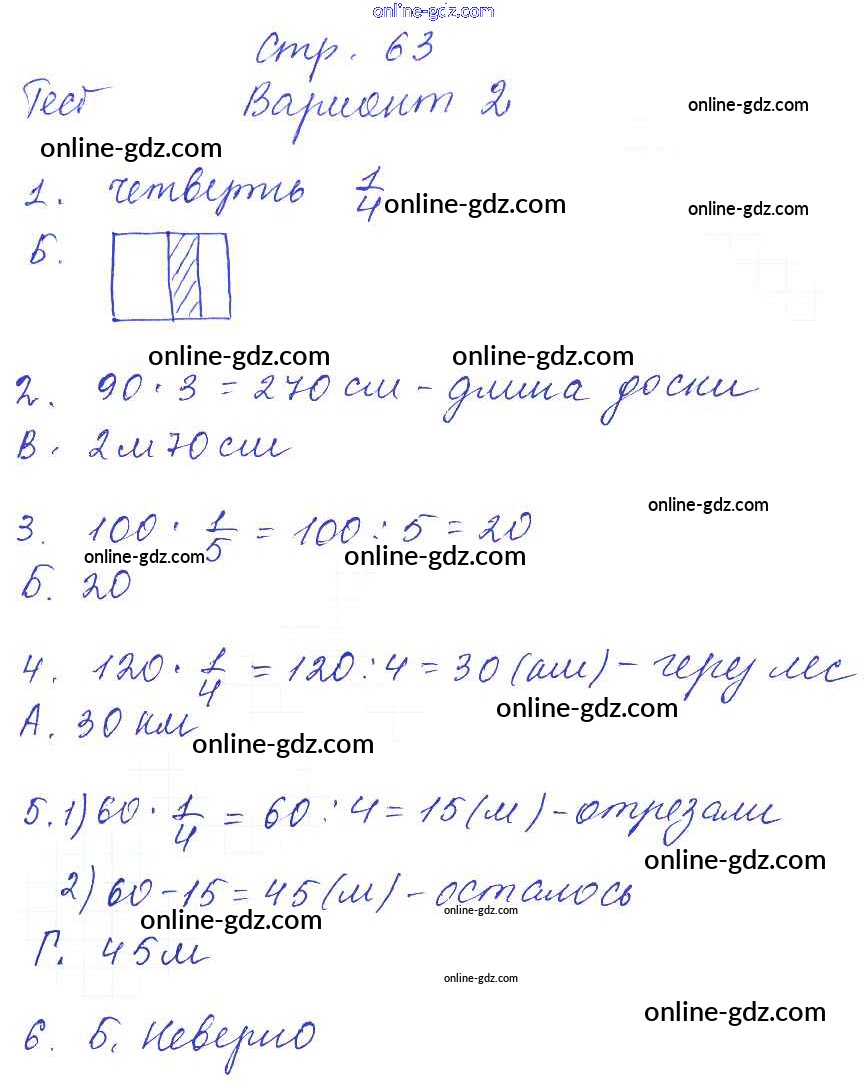 online-gdz.com
Стр. 63
Тест Вариант 2
online-gdz.com
online-gdz.com
1. четверть 1/4
online-gdz.com
online-gdz.com
Б.
online-gdz.com online-gdz.com
2. 90 · 3 = 270 см - длина доски
В. 2 м 70 см
online-gdz.com
3. 100 · 1/5 = 100 : 5 = 20
online-gdz.com online-gdz.com
Б. 20
4. 120 · 1/4 = 120 : 4 = 30 (км) - через лес
online-gdz.com
А. 30 км
online-gdz.com
5. 1) 60 · 1/4 = 60 : 4 = 15 (м) - отрезали
online-gdz.com
2) 60 - 15 = 45 (м) - осталось
online-gdz.com online-gdz.com
Г. 45 м
online-gdz.com
online-gdz.com
6. Б. Неверно